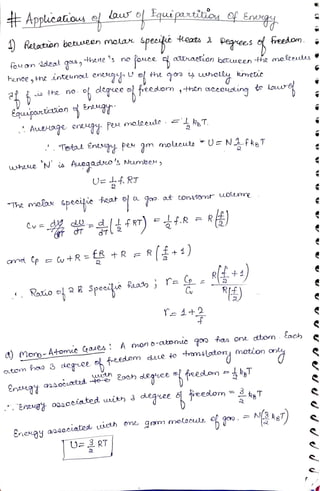 # Applications of Law of Equipartition Of Energy
1) Relation between molar Specific Heats & Degrees of Freedom.
For an ideal gas, there's no force of attraction between the molecules
hence, the internal energy U of the gas is wholly kinetic
If f is the no. of degree of freedom, then according to Law of
Equipartition of Energy.
∴ Average energy Per molecule = 1/2 f kBT.
∴ Total Energy per gm molecule = U = N 1/2 f kBT
where 'N' is Avogadro's Number,
U = 1/2 f. RT
The molar specific heat of a gas at constant volume
Cv = dU/dT = d/dT (1/2 f RT) = 1/2 f.R = R(f/2)
and Cp = Cv + R = fR/2 + R = R(f/2 + 1)
∴ Ratio of 2 Specific heats ; r = Cp/Cv = R(f/2 + 1) / R(f/2)
r = 1 + 2/f
a) Mono-Atomic Gases : A mono-atomic gas has one atom. Each
atom has 3 degree of freedom due to translatory motion only
Energy associated with Each degree of freedom = 1/2 kBT
∴ Energy associated with 3 degree of freedom = 3/2 kBT
Energy associated with one gram molecule of gas. = N(3/2 kBT)
U = 3/2 RT